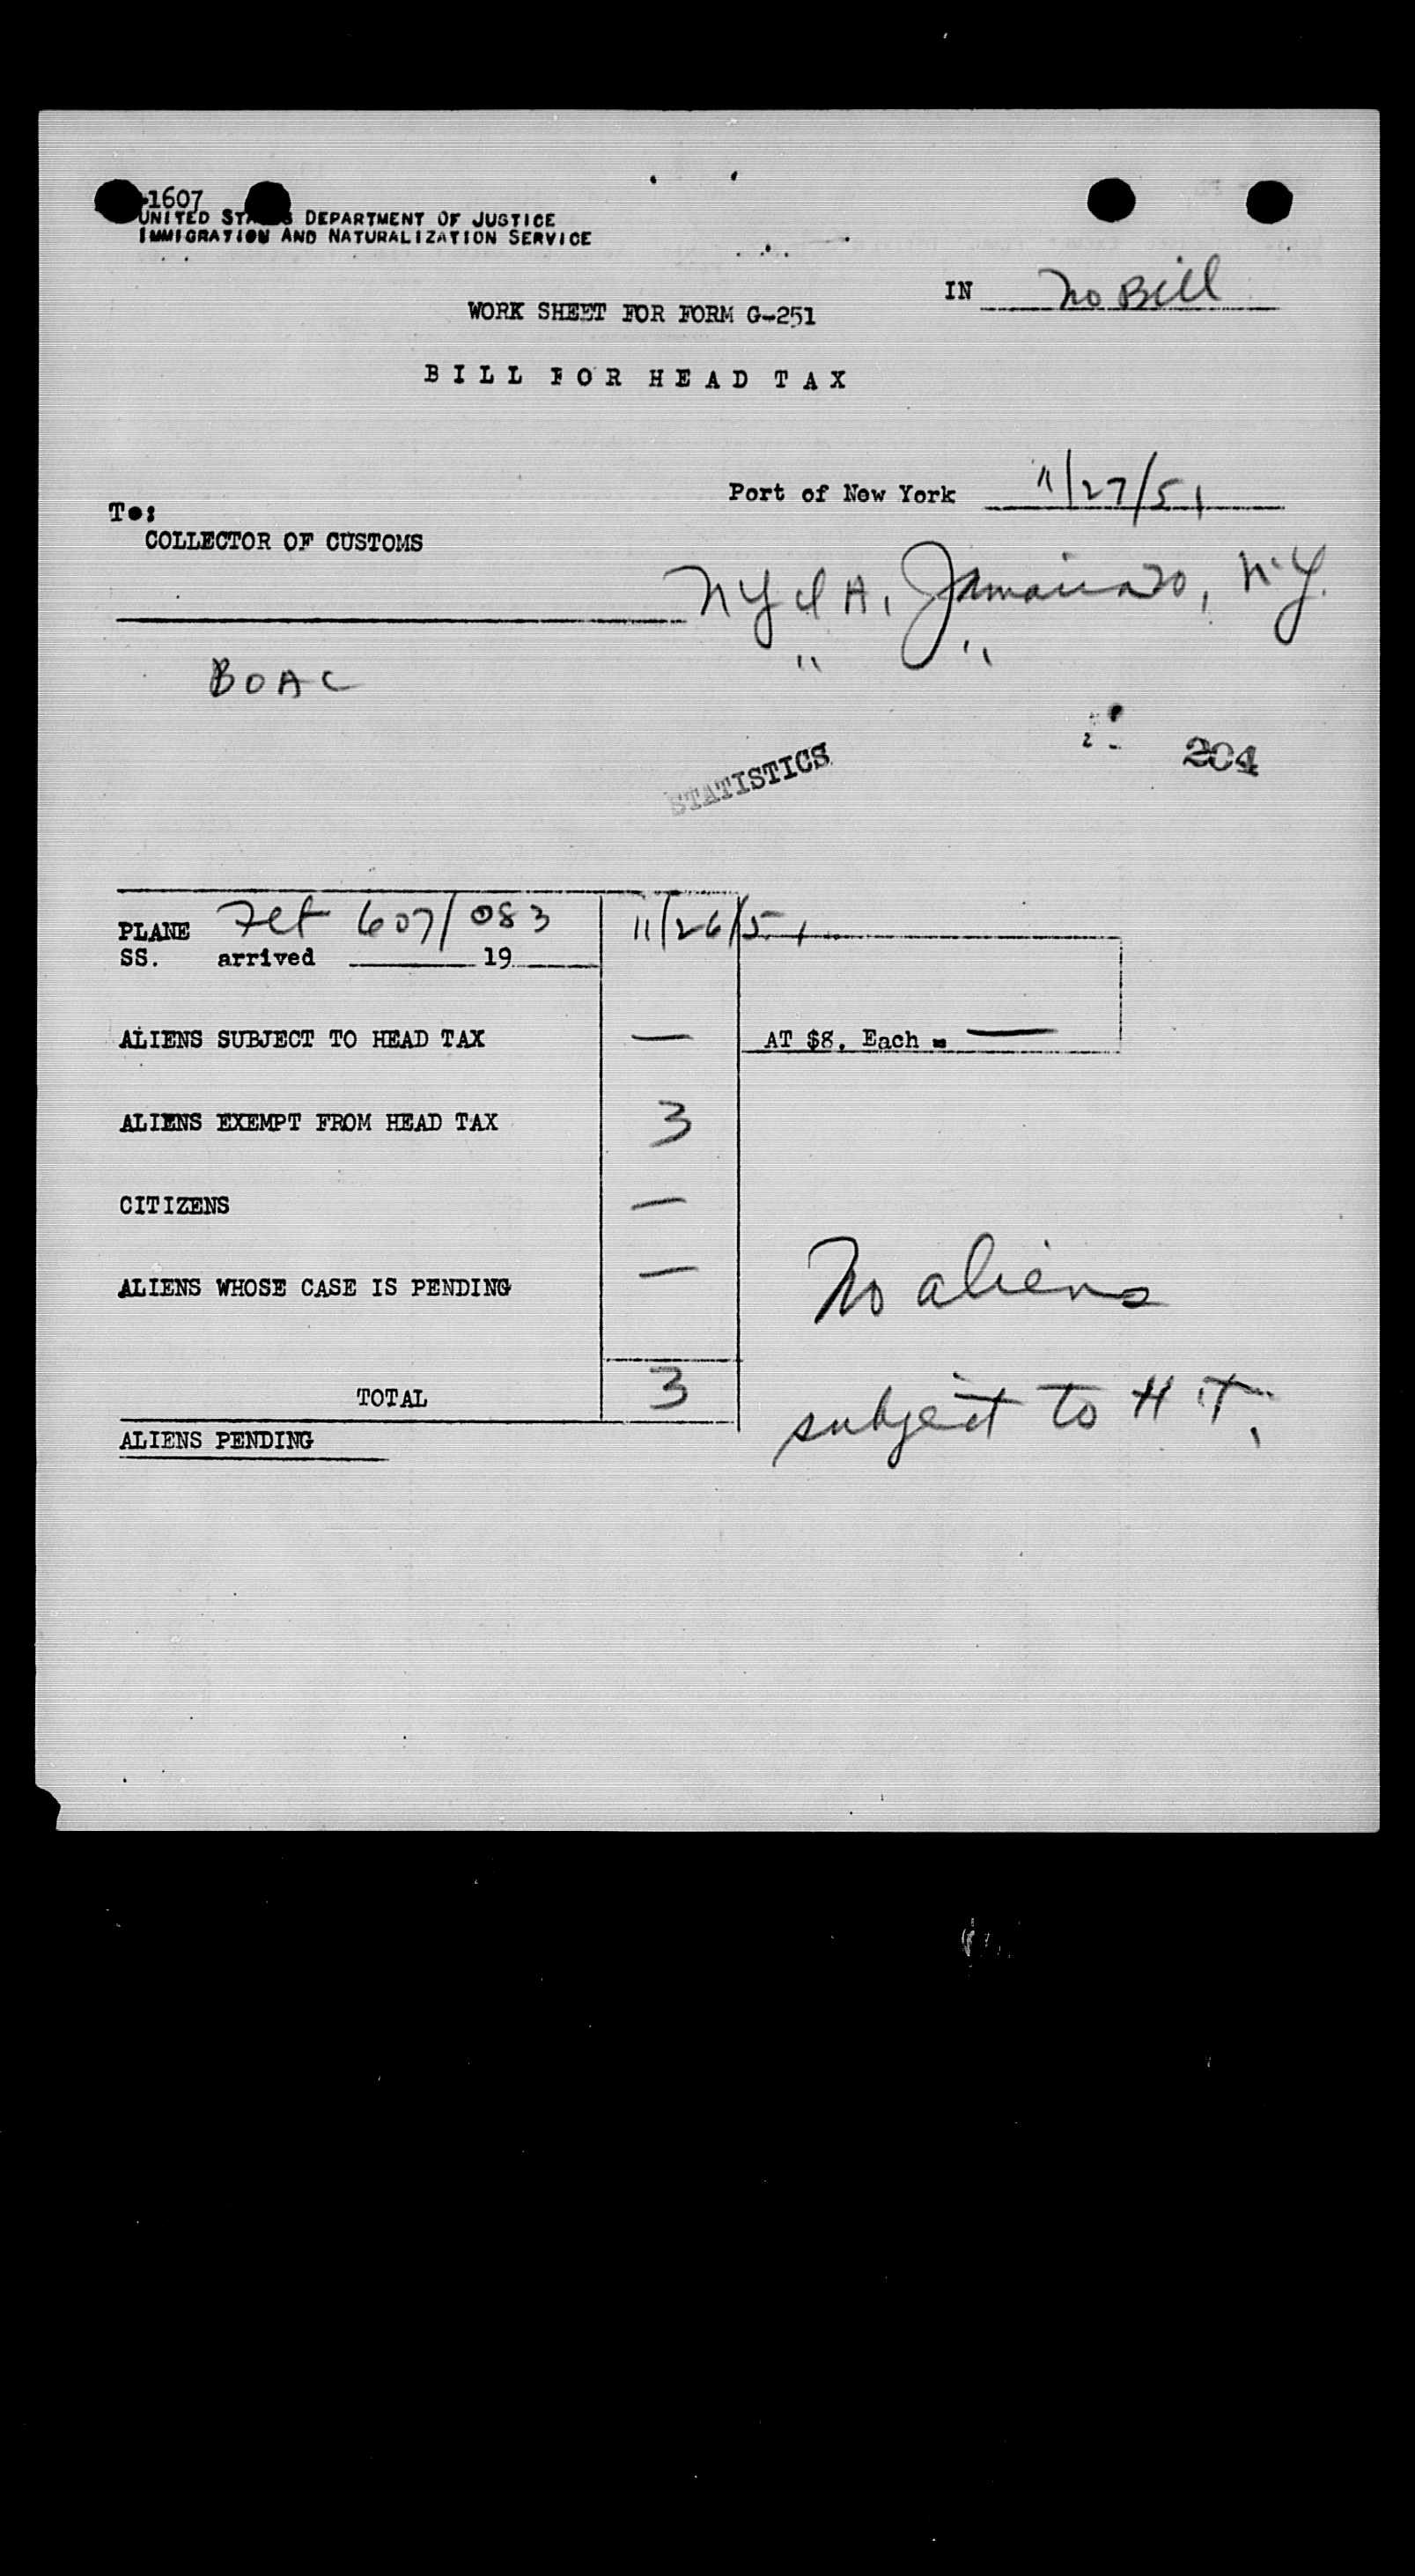 -1607
UNITED STATES DEPARTMENT OF JUSTICE
IMMIGRATION AND NATURALIZATION SERVICE
IN No Bill
WORK SHEET FOR FORM G-251
BILL FOR HEAD TAX
Port of New York 11/27/51
To:
COLLECTOR OF CUSTOMS
NYIA, Jamaica 30, N.Y.
" "
BOAC
204
STATISTICS
PLANE Flt 607/083 11/26/51
SS. arrived 19
ALIENS SUBJECT TO HEAD TAX — AT $8. Each = —
ALIENS EXEMPT FROM HEAD TAX 3
CITIZENS —
ALIENS WHOSE CASE IS PENDING —
No aliens
TOTAL 3
subject to H.T.
ALIENS PENDING